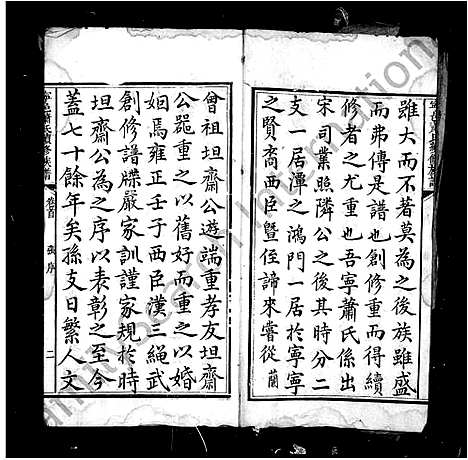 雖大而不著莫為之後族雖盛
而弗傳是譜也創修重而得續
修者之尤重也吾寧蕭氏係出
宋司業照隣公之後其時分二
支一居潭之鴻門一居於寧寧
之賢裔西臣暨侄諦來嘗從蘭
曾祖坦齋公遊端重孝友坦齋
公器重之以舊好而重之以婚
姻焉雍正壬子西臣漢三繩武
創修譜牒嚴家訓謹家規於時
坦齋公為之序以表彰之至今
蓋七十餘年矣孫支日繁人文
寧邑蕭氏續修族譜 卷首 張序 二